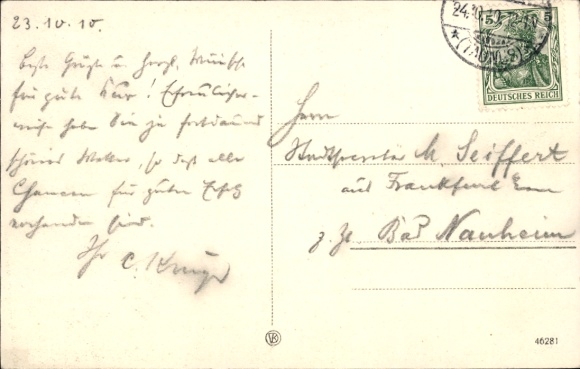 23.10.10.
beste Grüße u. herzl. Wünsche
für gute Kur! Erfreulicher-
weise haben Sie ja
schönes Wetter, so daß alle
Chancen für guten
vorhanden sind.
Ihr C. Krüger
24.10.10
(TAUNUS)
5
DEUTSCHES REICH
Herrn
M. Seiffert
aus Frankfurt
z. Zt. Bad Nauheim
VK
46281